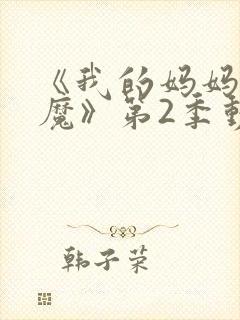 《我的妈妈
魔》第2季
韩子荣